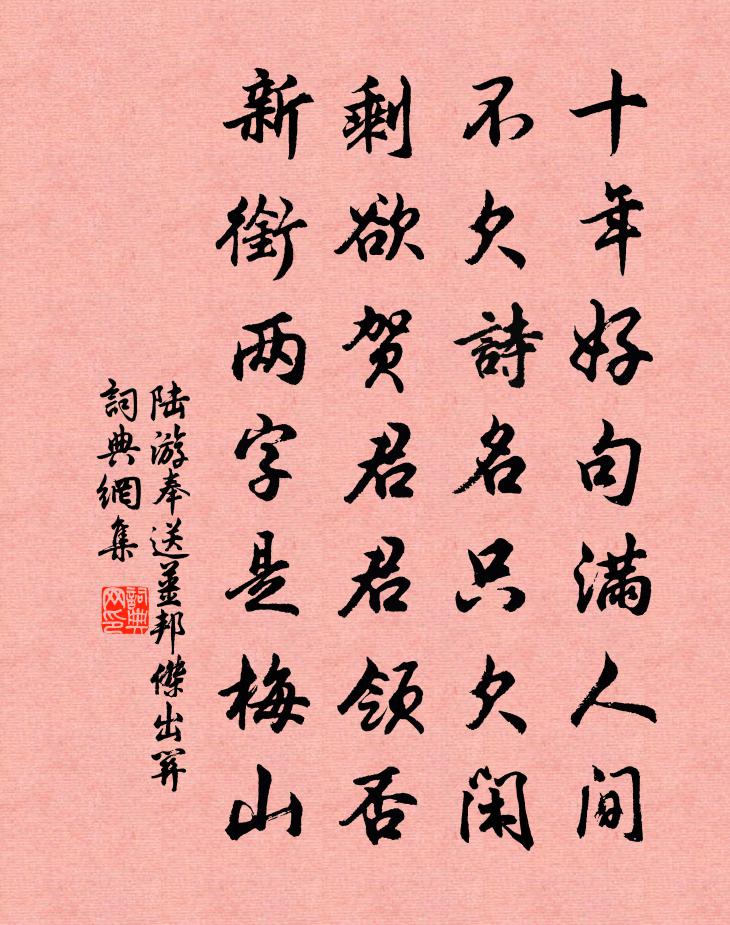 十年好句满人间
不欠詩名只欠闲
剩欲贺君君领否
新銜两字是梅山
陆游奉送薑邦傑出關
詞典網集
詞典网印